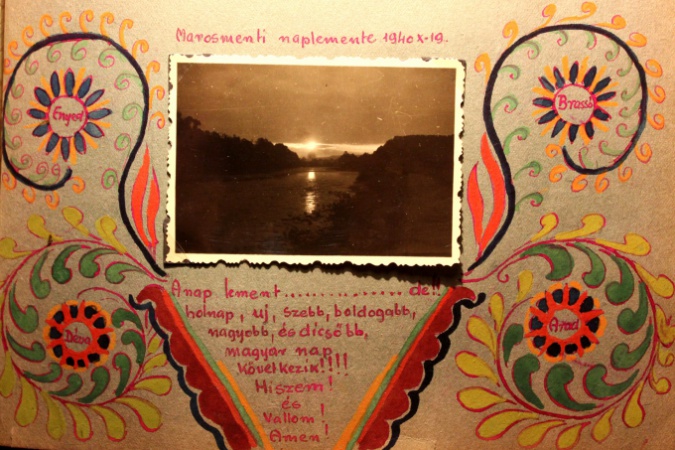 Marosmenti naplemente 1940 X-19.
Enyed
Brassó
A nap lement.................de!!
holnap, uj, szebb, boldogabb,
nagyobb, és dicsőbb,
magyar nap
következik!!!!
Hiszem!
és
Vallom!
Amen!
Déva
Arad